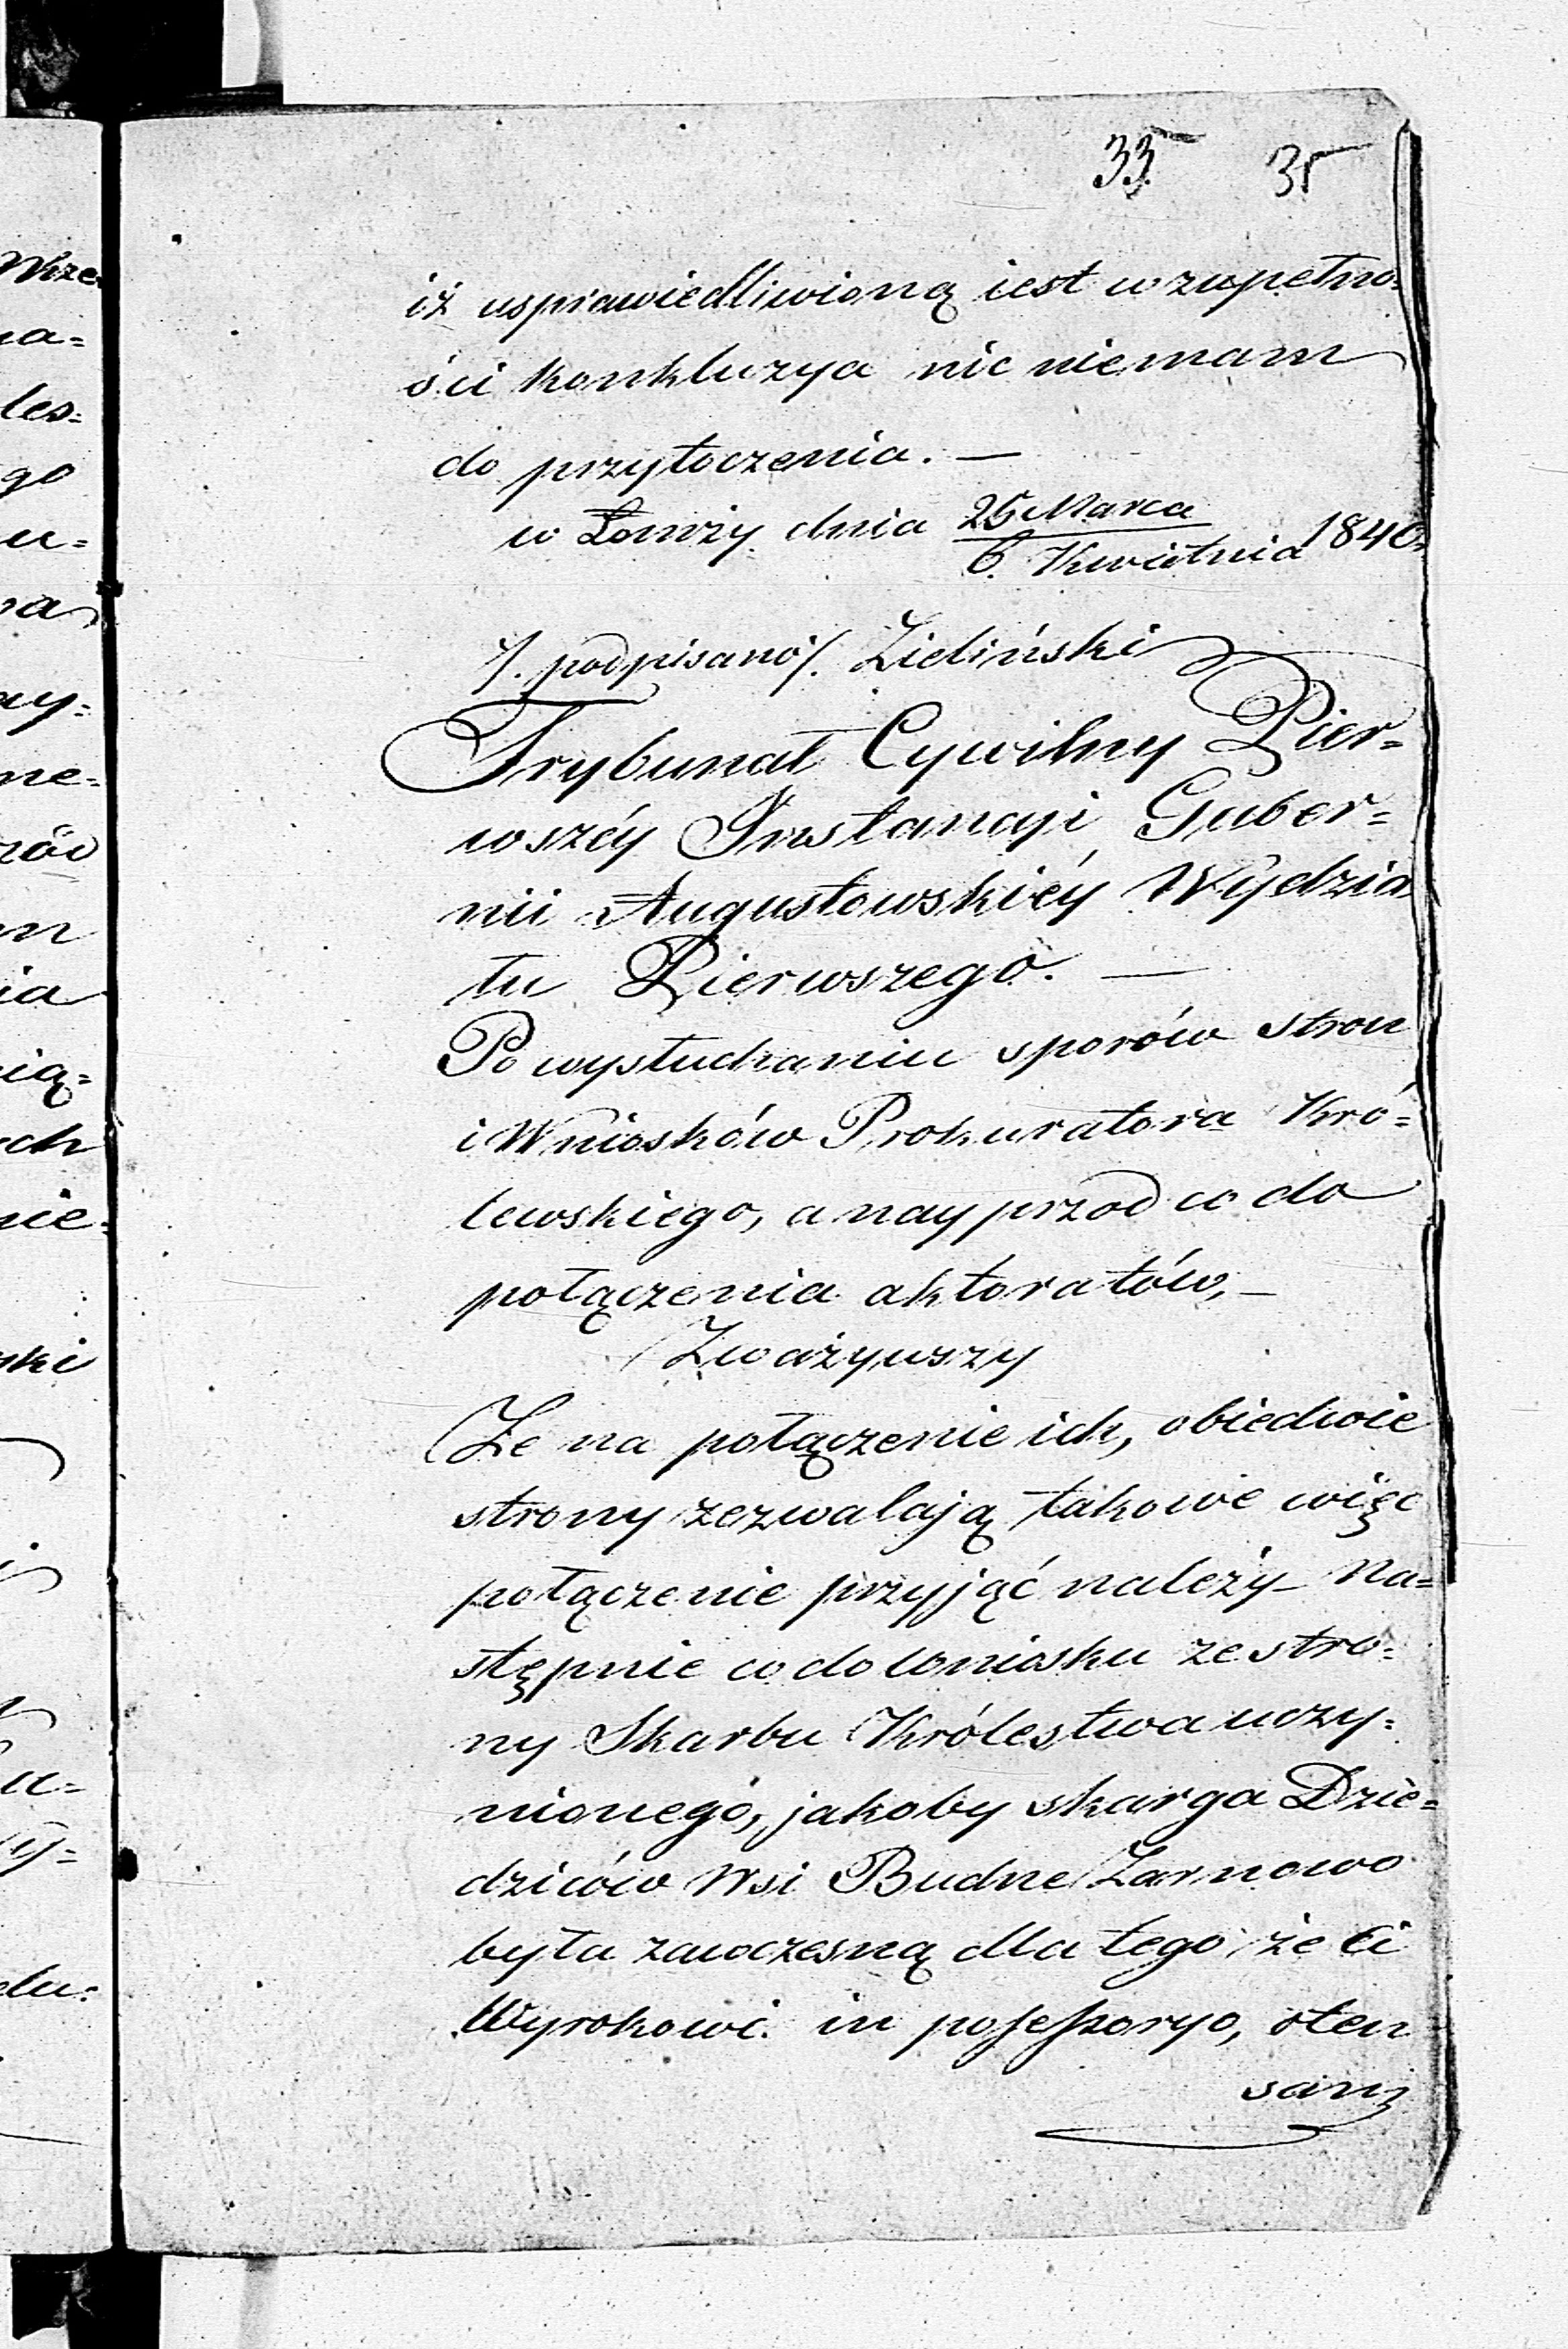 33. 35
iż usprawiedliwioną iest w zupełno=
ości konkluzya nic niemam
do przytoczenia. —
w Łomży dnia 25 Marca / 6. Kwietnia 1840.
/. podpisano /. Zieliński
Trybunał Cywilny Pier=
wszéy Instancyi Guber=
nii Augustowskiéy Wydzia
łu Pierwszego. —
Po wysłuchaniu sporów stron
i Wniosków Prokuratora Kró=
lewskiego, a nayprzod co do
połączenia aktoratów, —
Zważywszy
Że na połączenie ich, obiedwie
strony zezwalają takowe więc
połączenie przyjąć należy – Na=
stępnie co do wniosku ze stro=
ny Skarbu Królestwa uczy=
nionego, jakoby skarga Dzie=
dziców Wsi Budne Żarnowo
była zawczesną dla tego że Ci
Wyrokowi in possessoryo, o ten
sam
Wrze
na=
les=
go
u=
wa
ay=
ne=
zód
m
ia
ią=
ch
nie=
ski
u=
ey=
elu=